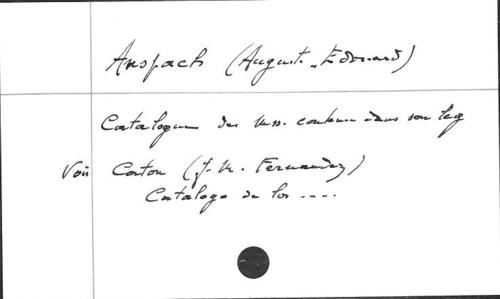 Anspach (August-Edouard)
Catalogue des mss. contenus dans son leg
Voir Corton (J.-M. Fernandez)
Catalogo de los ....